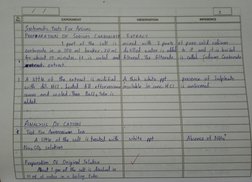 EXPERIMENT OBSERVATION INFERENCE
Systematic Tests For Anions
PREPARATION OF SODIUM CARBONATE EXTRACT
1 part of the salt is mixed with 2 parts of pure solid sodium
carbonate in a 100 ml beaker. 20 ml distilled water is added to it and it is boiled
for about 10 minutes. It is cooled and filtered. The filtrate is called Sodium Carbonate
extract.
A little of the extract is acidified with dil HCl, boiled till effervescence
ceases and cooled then BaCl2 is
added.
A thick white ppt
in conc HCl
presence of sulphate
is confirmed.
ANALYSIS OF CATION
Test For Ammonium Ion
A little of the salt is treated with
Na2CO3 solution
white ppt
Absence of
Preparation Of Original Solution
About 1 gm of the salt is dissolved in
ml of water in a boiling tube.